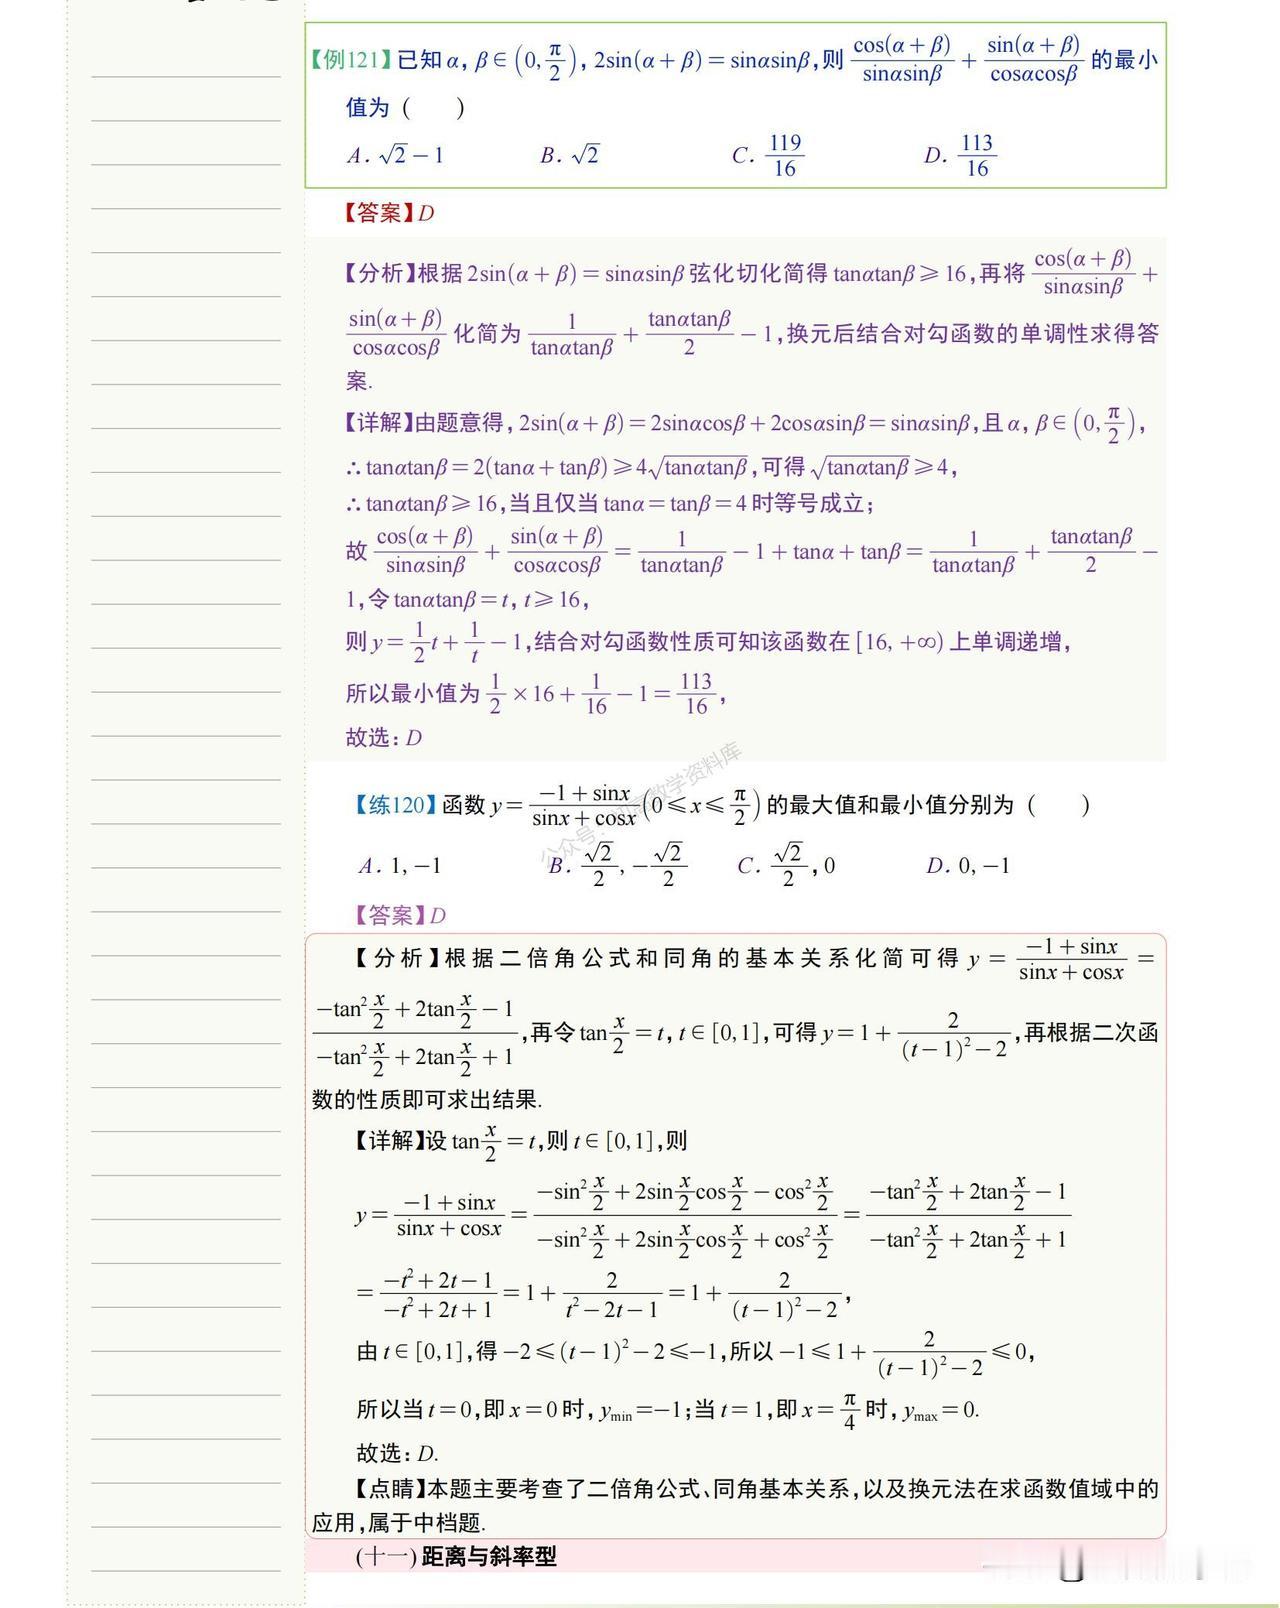 【例121】已知α, β∈(0,π/2), 2sin(α+β)=sinαsinβ,则 cos(α+β)/sinαsinβ + sin(α+β)/cosαcosβ 的最小
值为 (  )
A. √2-1  B. √2  C. 119/16  D. 113/16
【答案】D
【分析】根据2sin(α+β)=sinαsinβ弦化切化简得tanαtanβ≥16,再将 cos(α+β)/sinαsinβ +
sin(α+β)/cosαcosβ 化简为 1/tanαtanβ + tanαtanβ/2 -1,换元后结合对勾函数的单调性求得答
案.
【详解】由题意得, 2sin(α+β)=2sinαcosβ+2cosαsinβ=sinαsinβ,且α, β∈(0,π/2),
∴tanαtanβ=2(tanα+tanβ)≥4√tanαtanβ,可得√tanαtanβ≥4,
∴tanαtanβ≥16,当且仅当tanα=tanβ=4时等号成立;
故 cos(α+β)/sinαsinβ + sin(α+β)/cosαcosβ = 1/tanαtanβ -1+tanα+tanβ= 1/tanαtanβ + tanαtanβ/2 -
1,令tanαtanβ=t, t≥16,
则y=1/2t+1/t-1,结合对勾函数性质可知该函数在[16,+∞)上单调递增,
所以最小值为 1/2×16+1/16-1=113/16,
故选: D
【练120】函数y=(-1+sinx)/(sinx+cosx)(0≤x≤π/2)的最大值和最小值分别为 (  )
A. 1,-1  B. √2/2,-√2/2  C. √2/2,0  D. 0,-1
【答案】D
【分析】根据二倍角公式和同角的基本关系化简可得 y=(-1+sinx)/(sinx+cosx)=
(-tan²x/2+2tanx/2-1)/(-tan²x/2+2tanx/2+1),再令tanx/2=t, t∈[0,1],可得y=1+2/((t-1)²-2),再根据二次函
数的性质即可求出结果.
【详解】设tanx/2=t,则t∈[0,1],则
y=(-1+sinx)/(sinx+cosx)=(-sin²x/2+2sinx/2cosx/2-cos²x/2)/(-sin²x/2+2sinx/2cosx/2+cos²x/2)=(-tan²x/2+2tanx/2-1)/(-tan²x/2+2tanx/2+1)
=(-t²+2t-1)/(-t²+2t+1)=1+2/(t²-2t-1)=1+2/((t-1)²-2),
由t∈[0,1],得-2≤(t-1)²-2≤-1,所以-1≤1+2/((t-1)²-2)≤0,
所以当t=0,即x=0时, ymin=-1;当t=1,即x=π/4时, ymax=0.
故选: D.
【点睛】本题主要考查了二倍角公式、同角基本关系,以及换元法在求函数值域中的
应用,属于中档题.
(十一)距离与斜率型